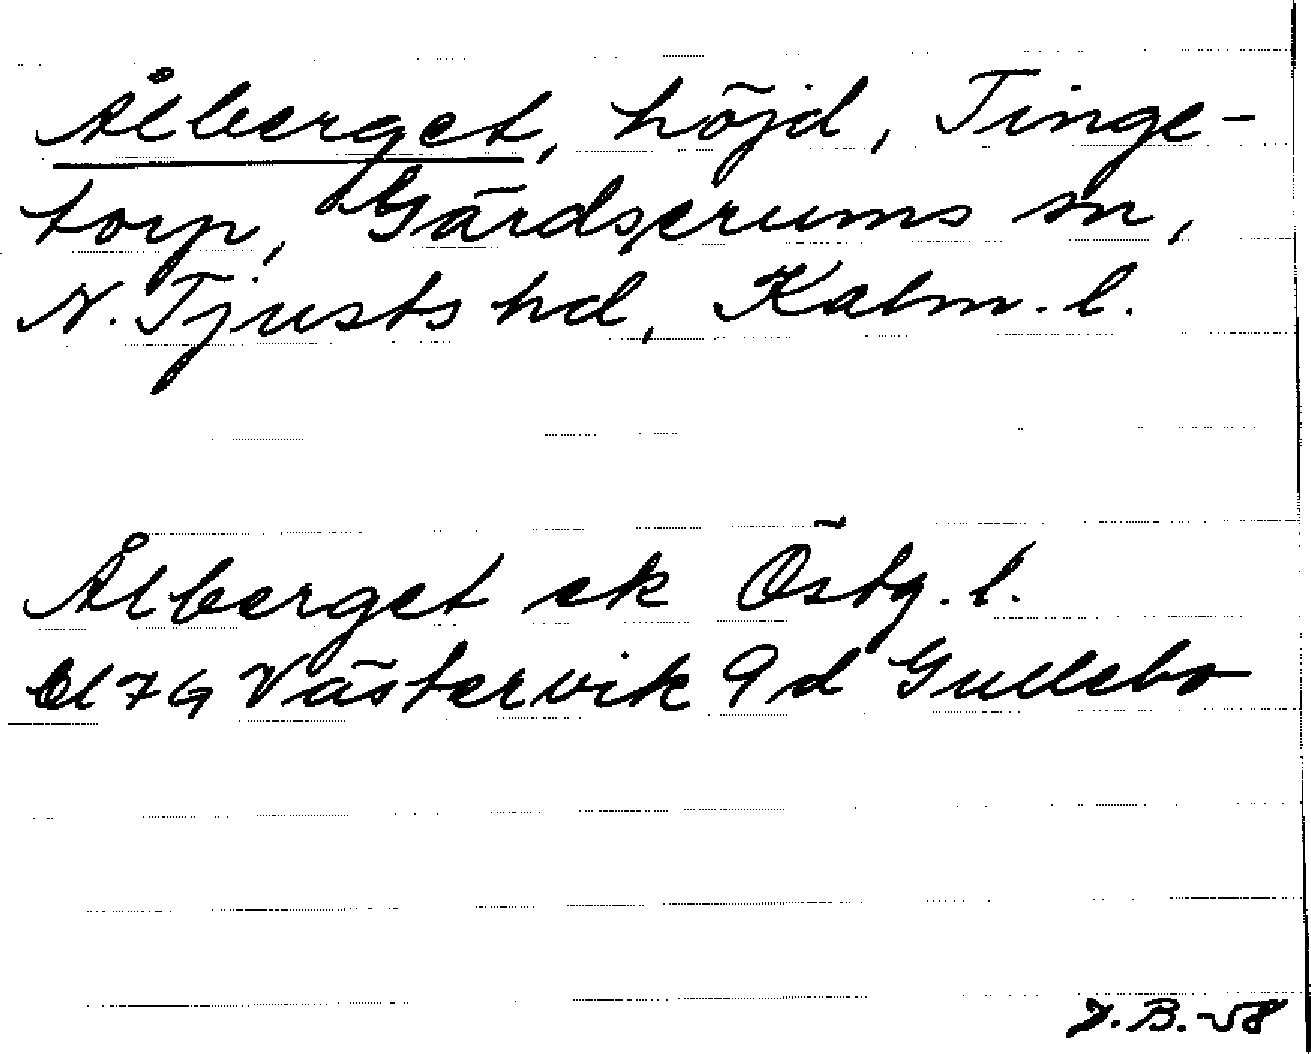 Ålberget, höjd, Tinge-
torp, Gärdserums sn,
N. Tjusts hd, Kalm. l.
Ålberget ek Östg. l.
7G Västervik 9d Gullebo
B. -58